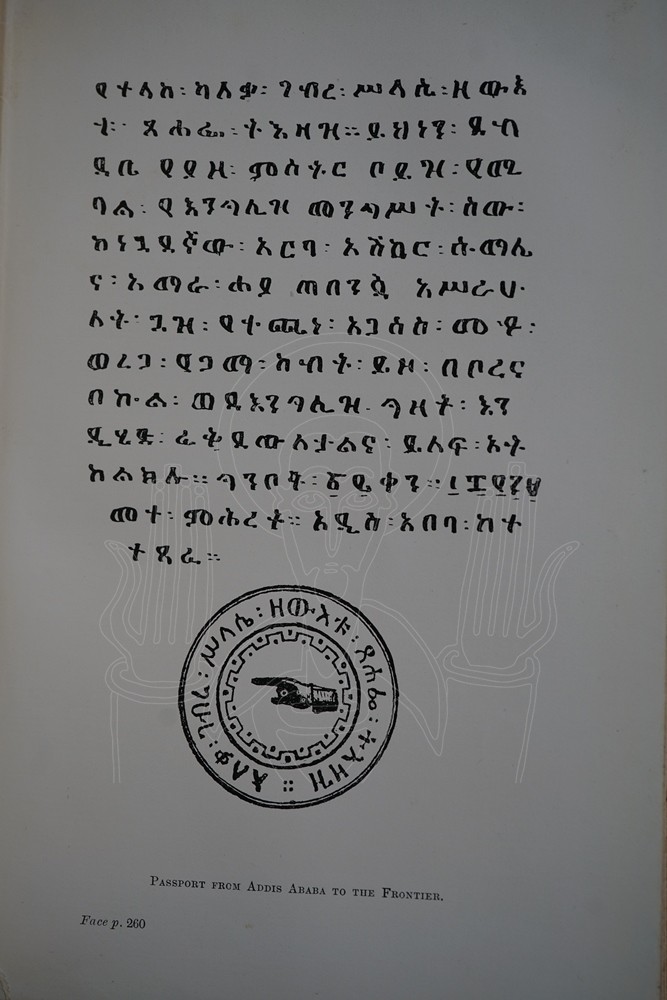 የተላከ፡ ካለቃ፡ ገብረ፡ ሥላሴ፡ ዘውእ
ቱ፡ ጸሐፌ፡ ትእዛዝ። ይህነን፡ ደብ
ዳቤ የያዘ፡ ምስትር ቦይዝ፡ የሚ
ባል፡ የእንግሊዝ መንግሥት፡ ሰው፡
ከነጓደኛው፡ አርባ፡ አሽከር፡ ሱማሌ
ና፡ አማራ፡ ሐያ ጠበንጃ አሥራሁ
ለት፡ ጓዝ፡ የተጫነ፡ አጋሰስ፡ መቶ፡
ወረጋ፡ የጋማ፡ ከብት፡ ይዞ፡ በቦረና
በኩል፡ ወደእንግሊዝ ግዛት፡ እን
ዲሂድ፡ ፈቅደውለታልና፡ ይለፍ፡ አት
ከልክሉ። ግንቦት፡ ቀን።
መተ፡ ምሕረት። አዲስ፡ አበባ፡ ከተ
ተጻፈ።
አለቃ፡ ገብረ፡ ሥላሴ፡ ዘውእቱ፡ ጸሐፌ፡ ትእዛዝ።
PASSPORT FROM ADDIS ABABA TO THE FRONTIER.
Face p. 260